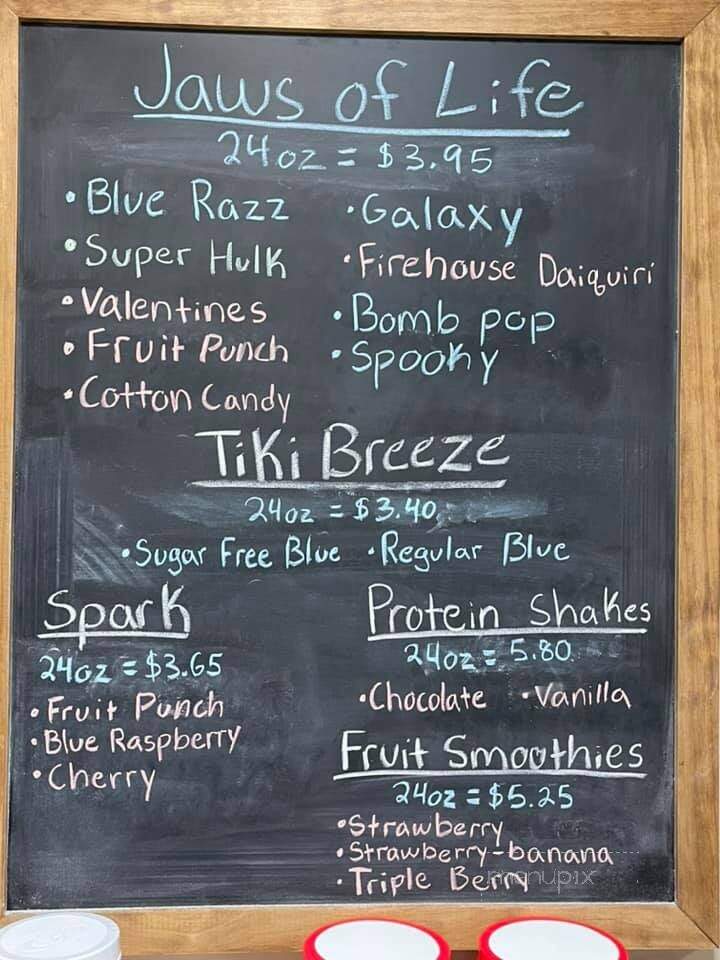 Jaws of Life
24oz = $3.95
• Blue Razz
• Super Hulk
• Valentines
• Fruit Punch
• Cotton Candy
• Galaxy
• Firehouse Daiquiri
• Bomb pop
• Spooky
Tiki Breeze
24oz = $3.40
• Sugar Free Blue • Regular Blue
Spark
24oz = $3.65
• Fruit Punch
• Blue Raspberry
• Cherry
Protein Shakes
24oz = 5.80
• Chocolate • Vanilla
Fruit Smoothies
24oz = $5.25
• Strawberry
• Strawberry-banana
• Triple Berry
menupix